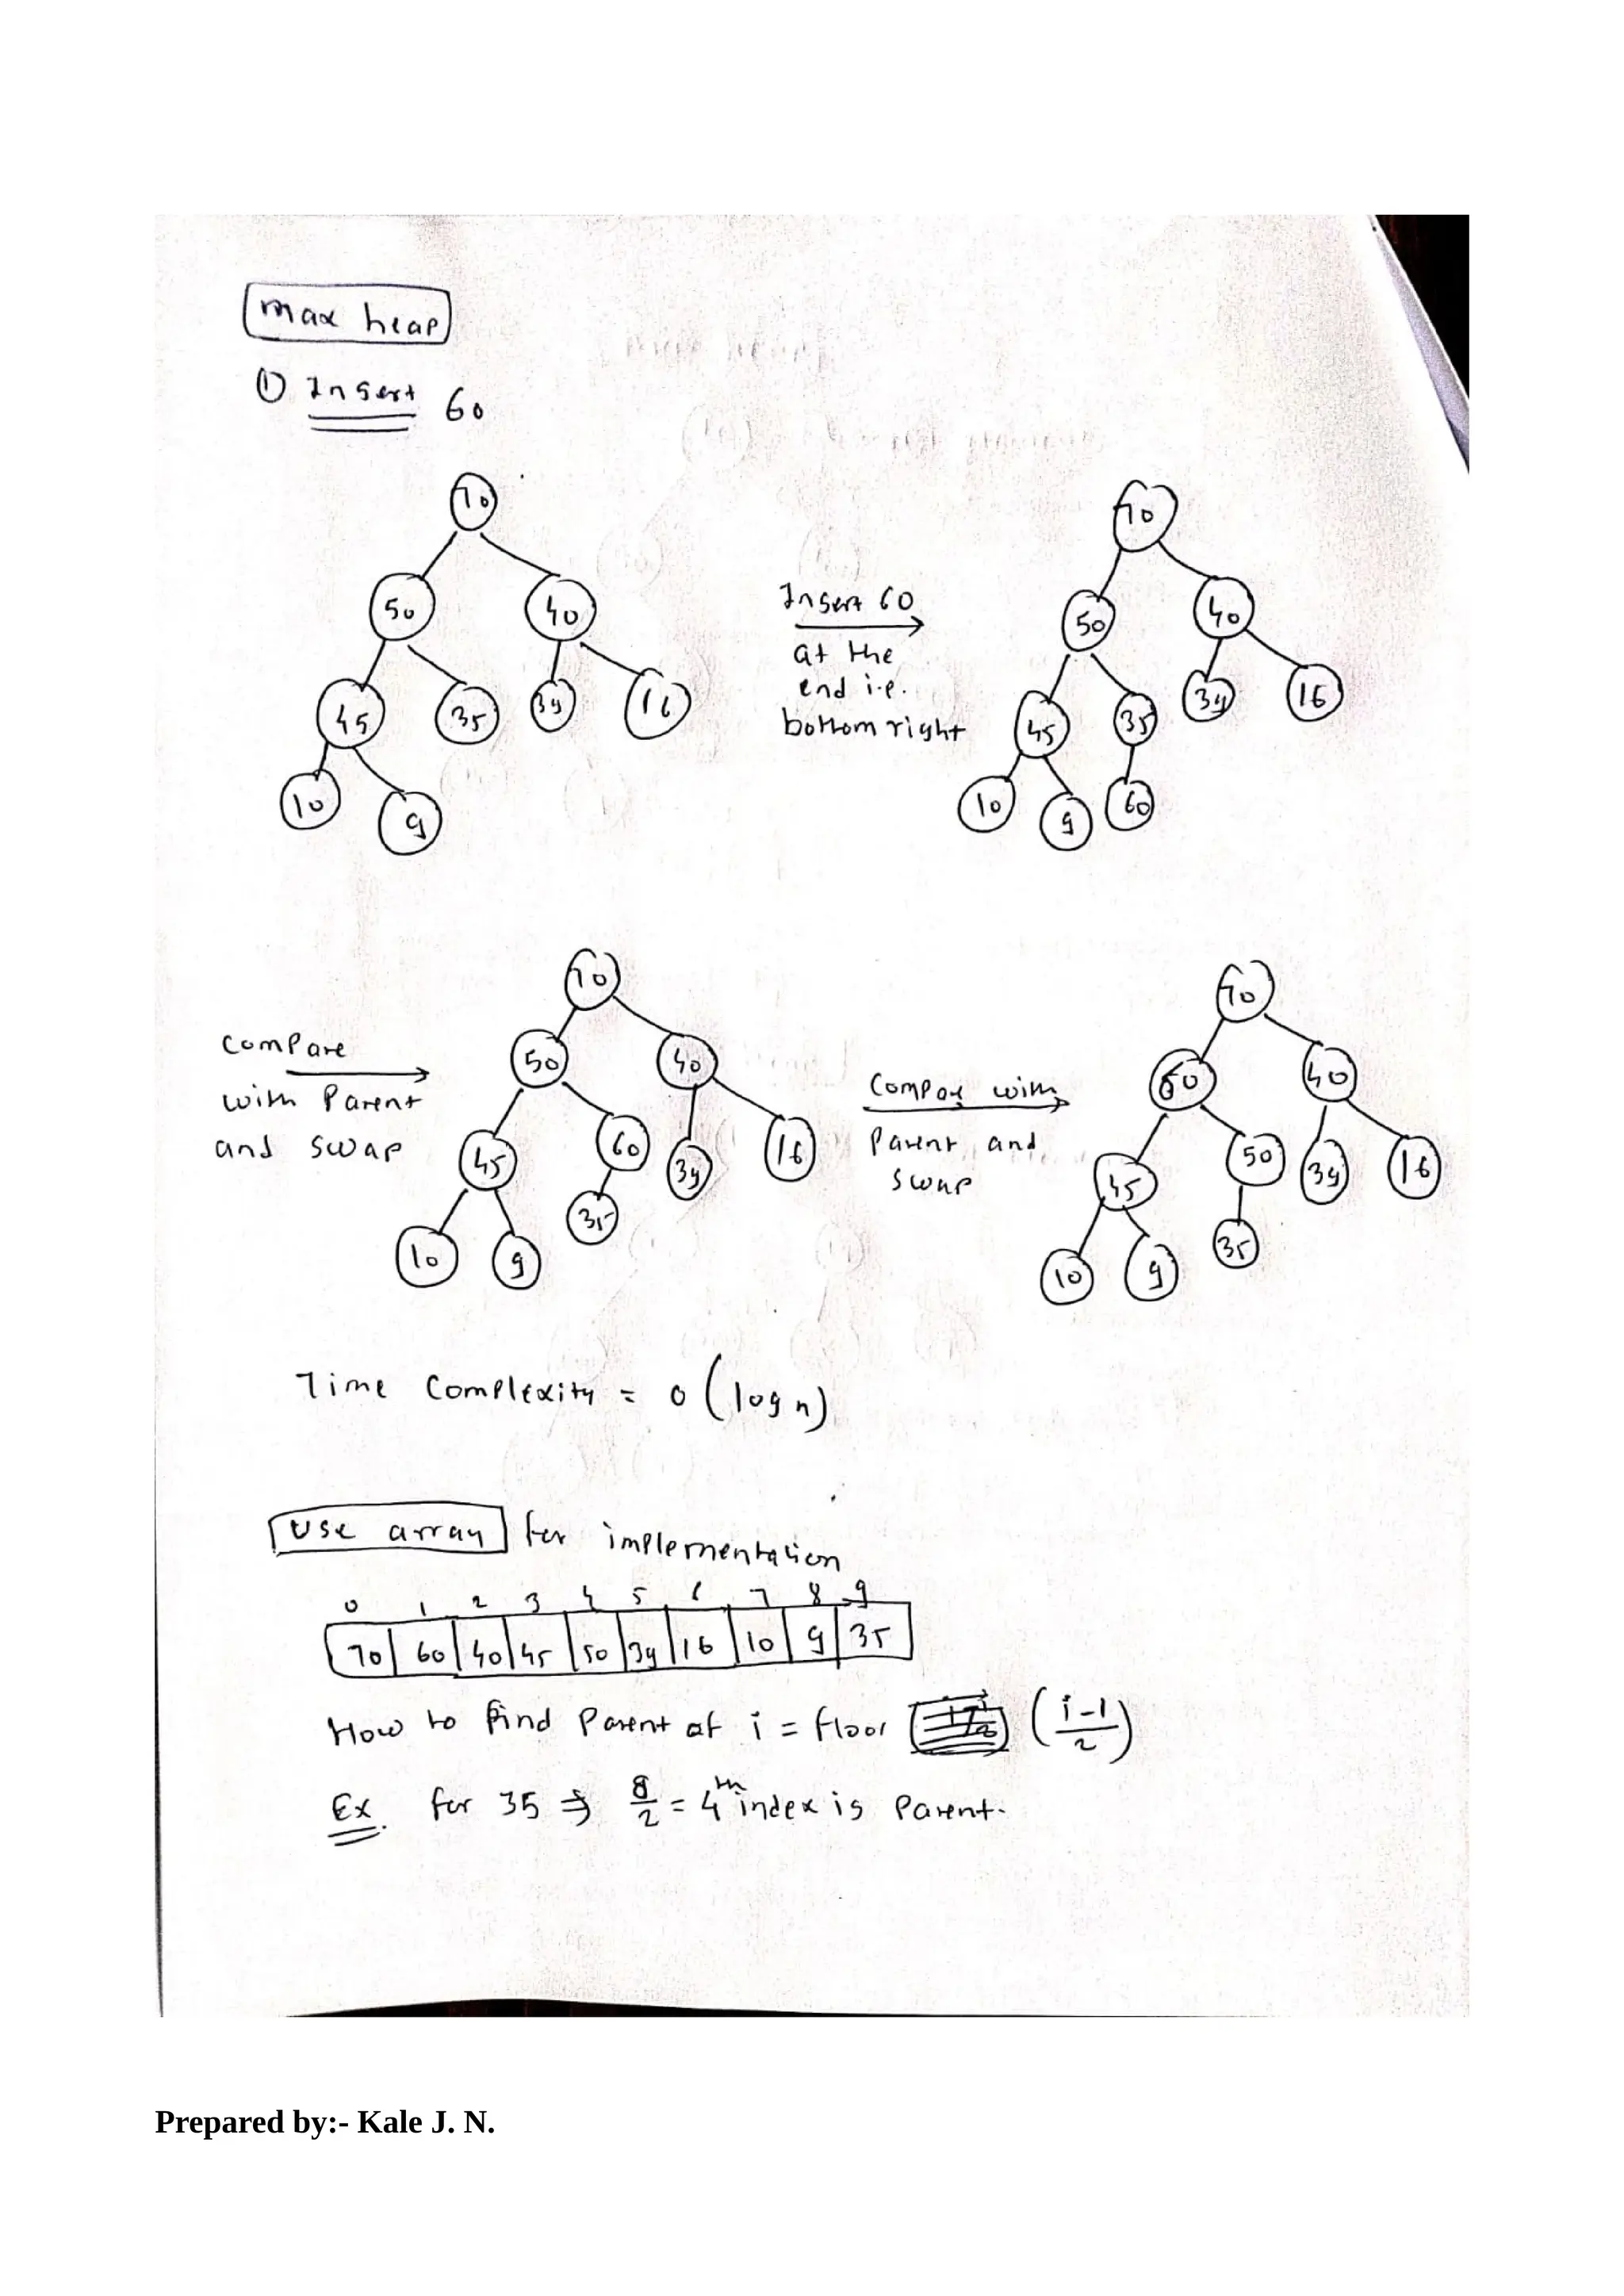 max heap
① Insert 60
70
50 40
45 35 39 16
10 9
Insert 60
at the
end i.e.
bottom right
70
50 40
45 35 39 16
10 9 60
Compare
with Parent
and swap
70
50 40
45 60 39 16
10 9 35
Compare with
Parent and
swap
70
60 40
45 50 39 16
10 9 35
Time Complexity = o (log n)
Use array for implementation
0 1 2 3 4 5 6 7 8 9
70 60 40 45 50 39 16 10 9 35
How to find Parent of i = floor (i-1/2)
Ex. for 35 ⇒ 8/2 = 4th index is Parent.
Prepared by:- Kale J. N.